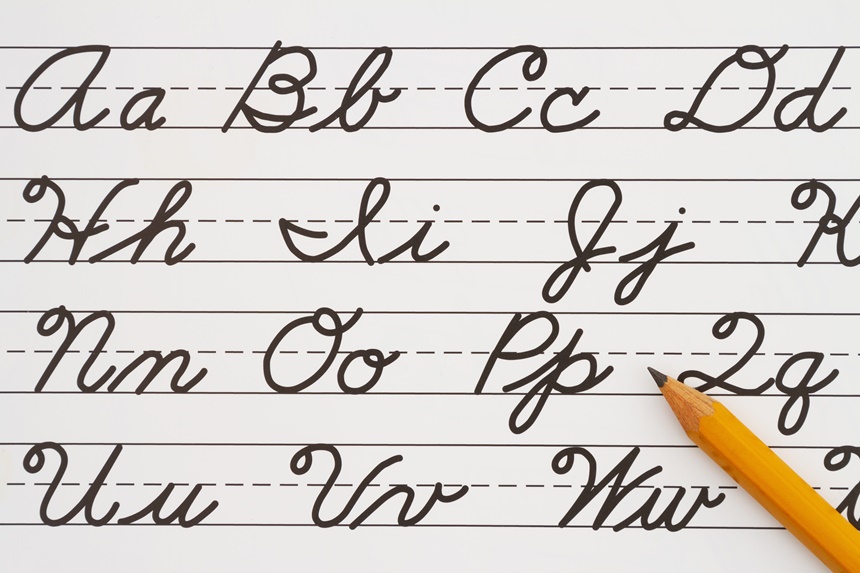 Aa Bb Cc Dd
Hh Ii Jj K
Nn Oo Pp Qq
Uu Vv Ww